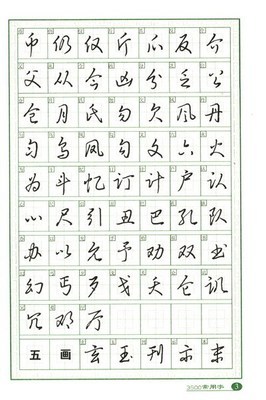 币 仍 仅 斤 爪 反 介
父 从 今 凶 分 乏 公
仓 月 氏 勿 欠 风 丹
匀 乌 凤 勾 文 六 火
为 斗 忆 订 计 户 认
心 尺 引 丑 巴 孔 队
办 以 允 予 劝 双 书
幻 丐 歹 戈 夭 仑 讥
冗 邓 厅
五 画 玄 玉 刊 示 末
3500常用字 3